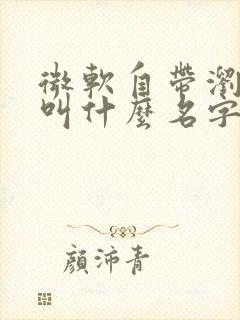 微軟自帶瀏
叫什麼名字
顏沛青